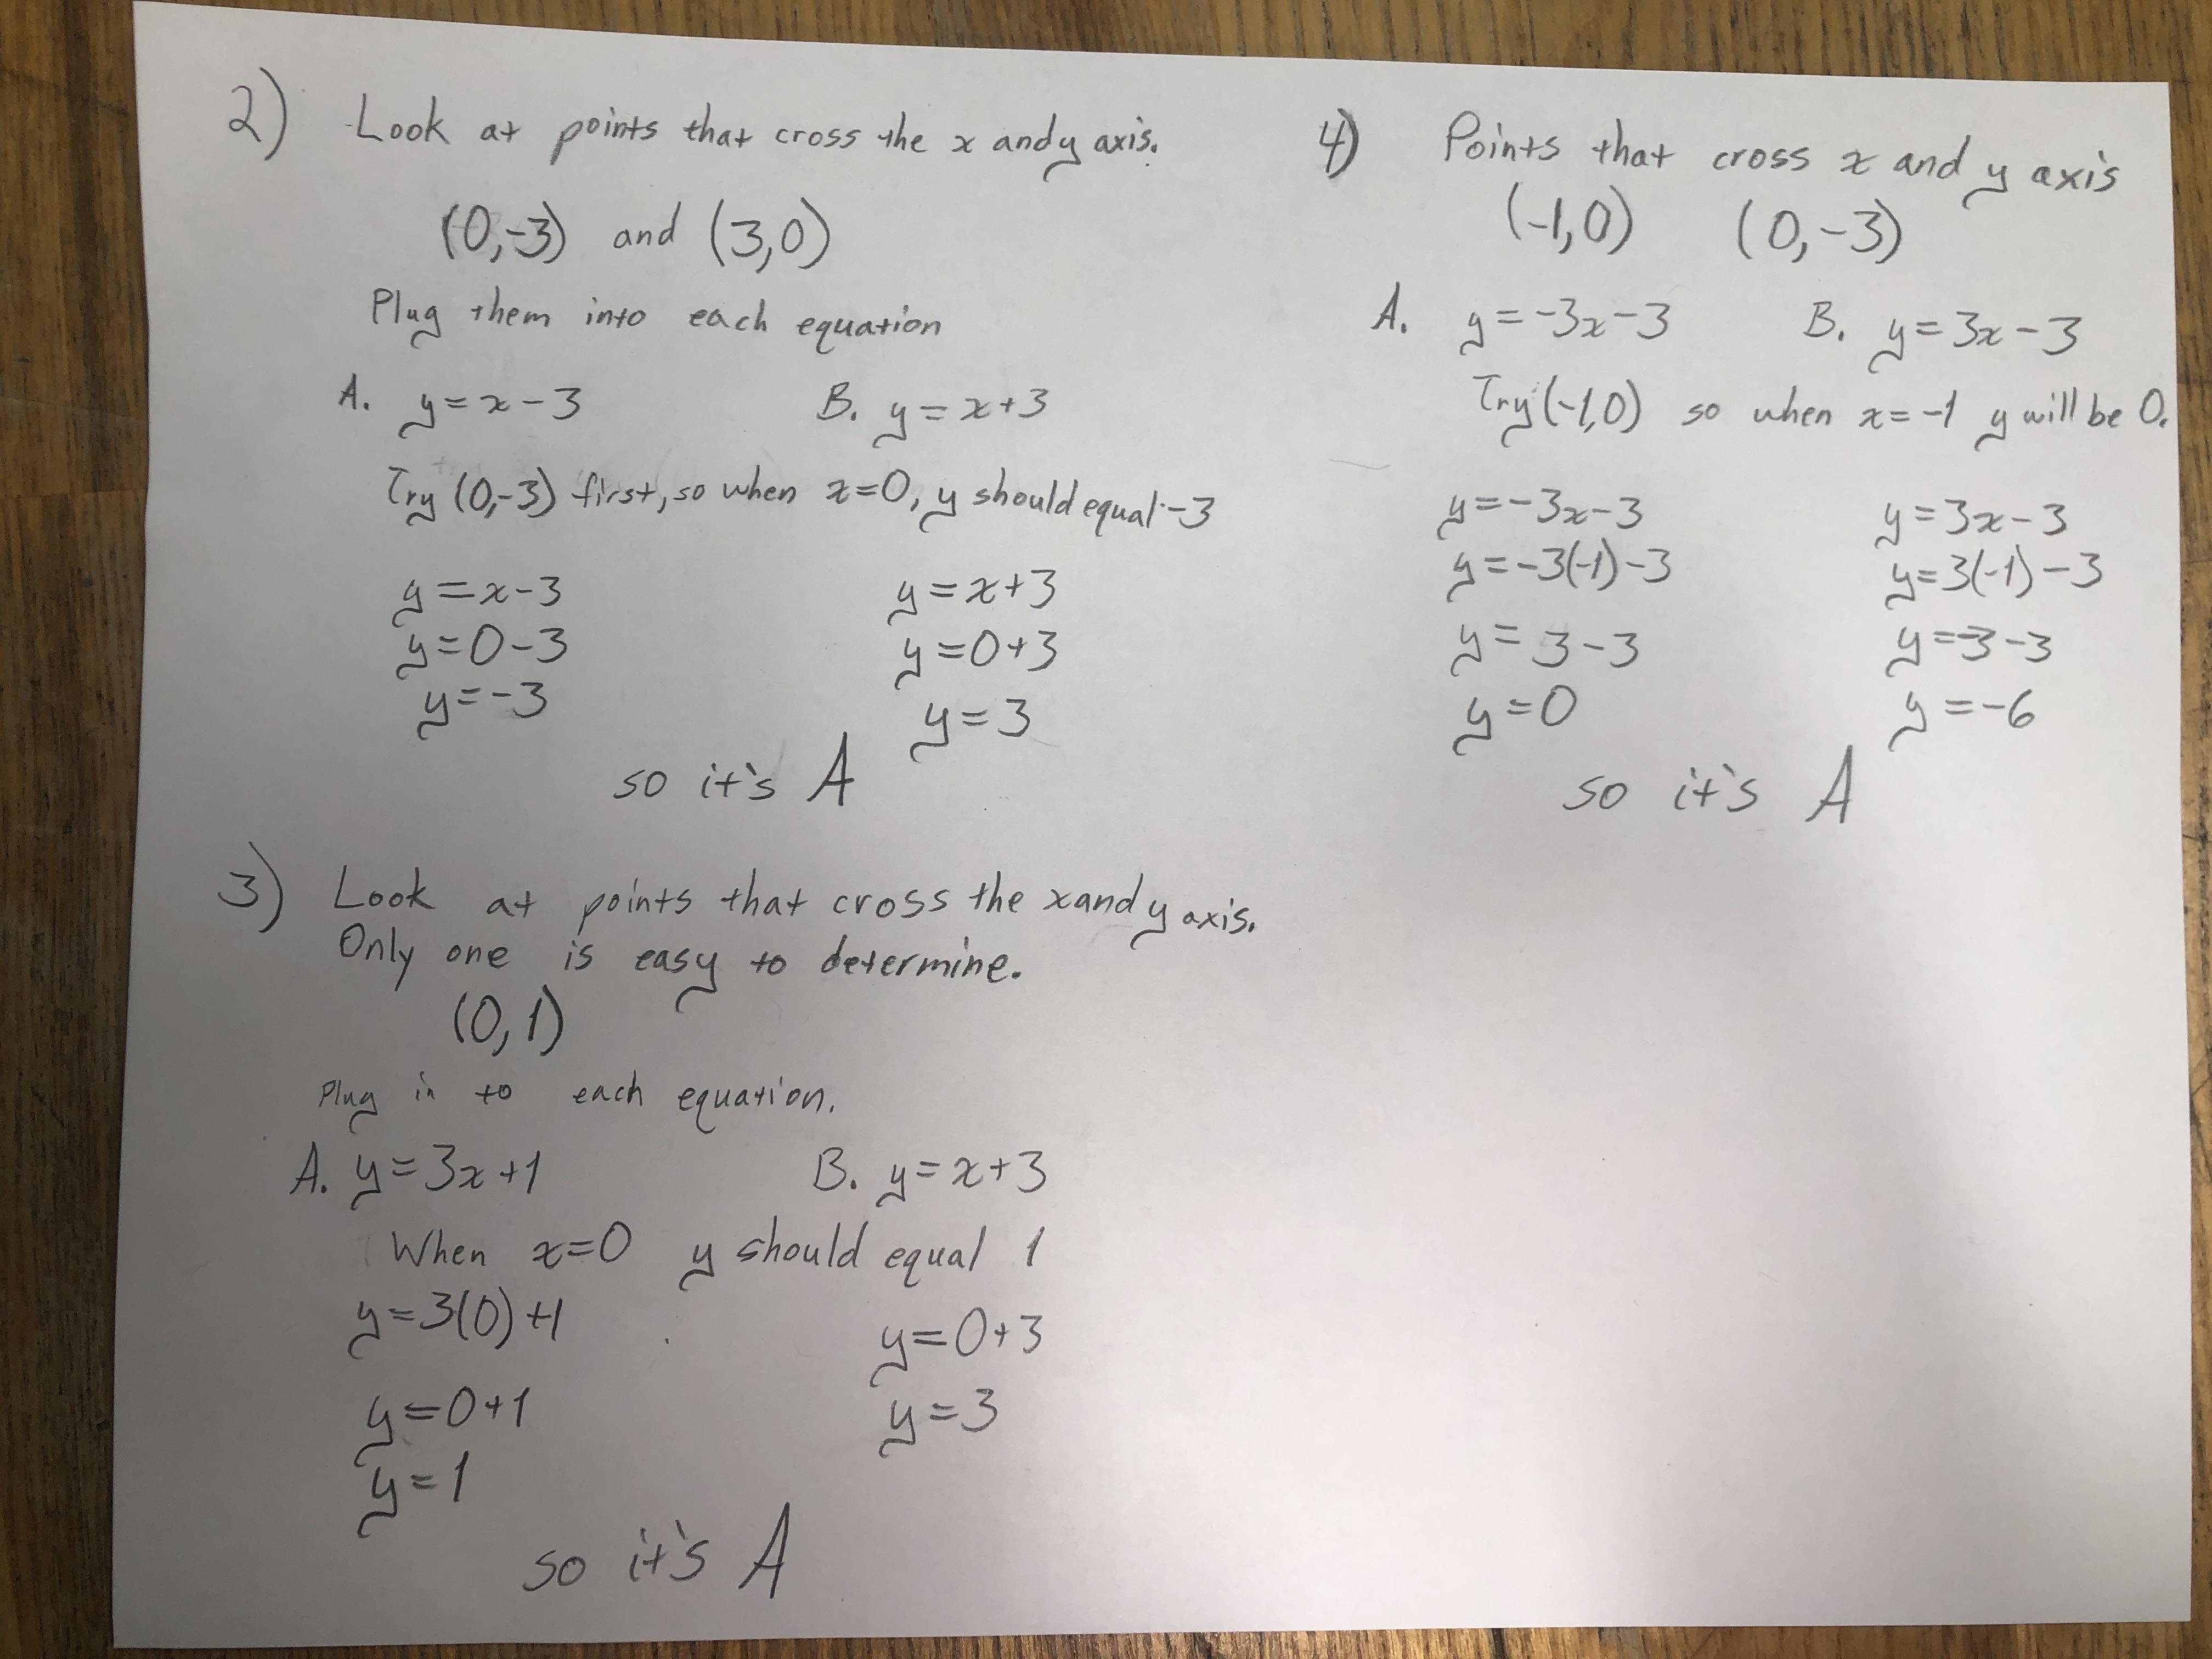 2) Look at points that cross the x and y axis.
(0,-3) and (3,0)
Plug them into each equation
A. y=x-3 B. y=x+3
Try (0,-3) first, so when x=0, y should equal -3
y=x-3 y=x+3
y=0-3 y=0+3
y=-3 y=3
so it's A
3) Look at points that cross the x and y axis.
Only one is easy to determine.
(0,1)
Plug in to each equation.
A. y=3x+1 B. y=x+3
When x=0 y should equal 1
y=3(0)+1 y=0+3
y=0+1 y=3
y=1
so it's A
4) Points that cross x and y axis
(-1,0) (0,-3)
A. y=-3x-3 B. y=3x-3
Try (-1,0) so when x=-1 y will be 0.
y=-3x-3 y=3x-3
y=-3(-1)-3 y=3(-1)-3
y=3-3 y=-3-3
y=0 y=-6
so it's A